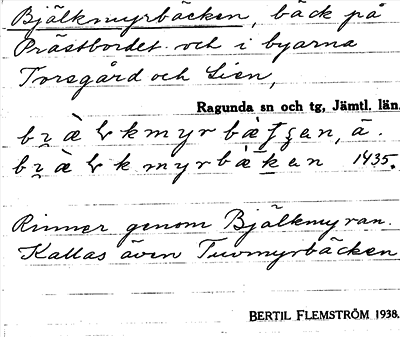 Bjälkmyrbäcken, bäck på
Prästbordet och i byarna
Torsgård och Lien,
Ragunda sn och tg, Jämtl. län.
1435.
Rinner genom Bjälkmyran.
Kallas även Tuvmyrbäcken
BERTIL FLEMSTRÖM 1938.